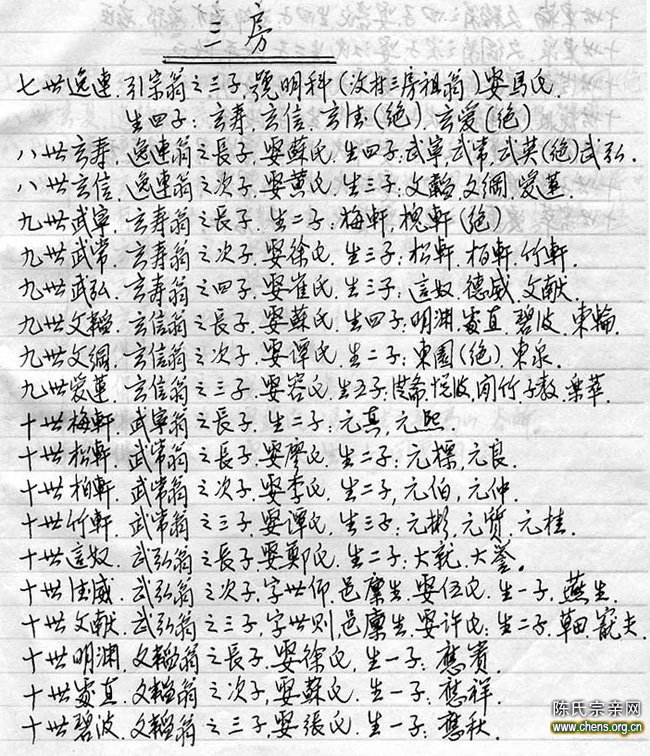 三房
七世逸連.引宗翁之三子,號明科(汶村三房祖翁)娶馬氏.
生四子:玄寿,玄信.玄法(絶).玄爱(絶)
八世玄寿,逸連翁之長子,娶蘇氏,生四子:武寧,武常,武英(绝)武弘.
八世玄信,逸連翁之次子,娶黄氏,生三子:文韜,文綱,爱蓮.
九世武寧,玄寿翁之長子.生二子:梅軒,槐軒(绝)
九世武常.玄寿翁之次子.娶徐氏,生三子:松軒.栢軒.竹軒.
九世武弘,玄寿翁之四子,娶崔氏,生三子:這奴.德威,文献.
九世文韜.玄信翁之長子.娶蘇氏,生四子:明渊.爱直.碧波,東輪.
九世文綱,玄信翁之次子,娶谭氏,生二子:東園(绝)東泉.
九世爱蓮.玄信翁之三子,娶容氏,生五子:悦波,閒竹子教.乗華.
十世梅軒,武寧翁之長子,生二子:元真,元熙.
十世松軒.武常翁之長子,娶廖氏,生二子:元標,元良.
十世栢軒.武常翁之次子,娶李氏,生二子,元伯,元仲.
十世竹軒.武常翁之三子,娶谭氏,生三子:元彬,元贤,元桂.
十世這奴.武弘翁之長子,娶鄭氏.生二子:大就,大誉。
十世法威.武弘翁之次子,字世仰.邑廩生,娶伍氏.生一子,燕生.
十世文献.武弘翁之三子,字世则,邑廩生,娶许氏:生二子,草田寵夫.
十世明渊.文韜翁之長子,娶徐氏,生一子:應賓.
十世爱直.文韜翁之次子,娶蘇氏,生一子:應祥.
十世碧波.文韜翁之三子,娶張氏.生一子:應秋.
陈氏宗亲网
www.chens.org.cn